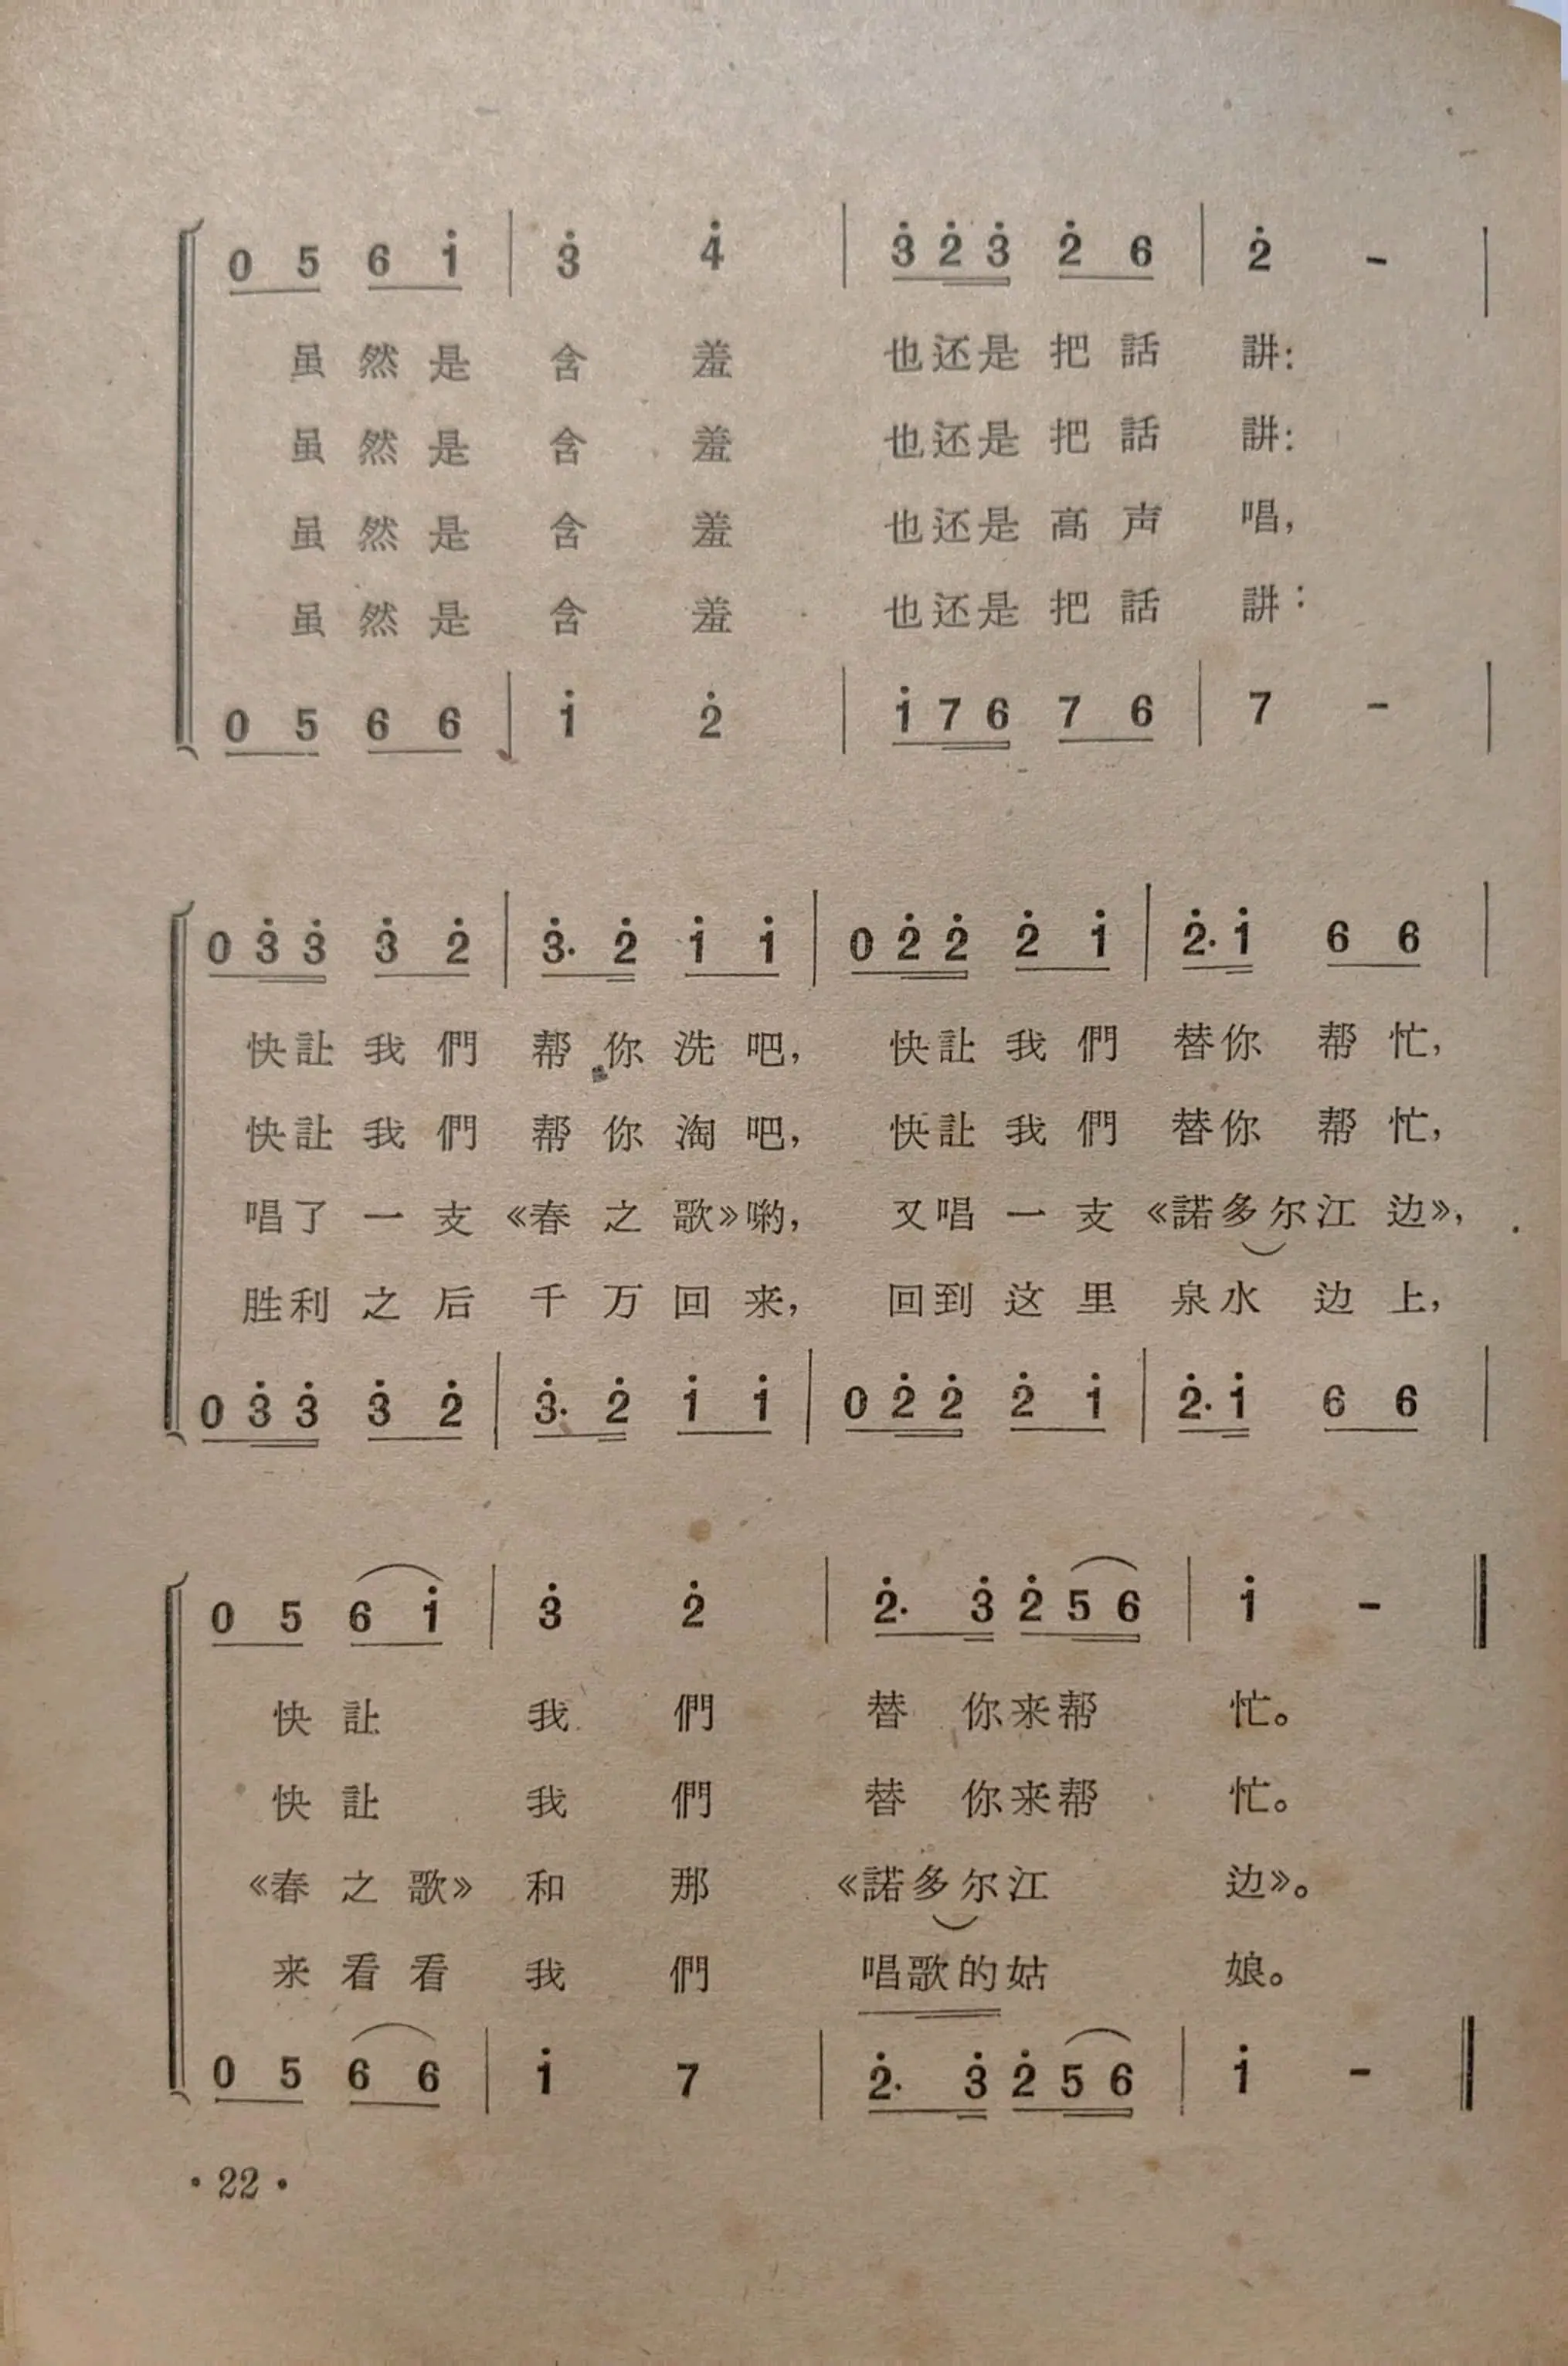 0 5 6 i̇ | 3̇ 4̇ | 3̇ 2̇ 3̇ 2̇ 6 | 2̇ - |
虽然是含羞 也还是把話講:
虽然是含羞 也还是把話講:
虽然是含羞 也还是高声唱,
虽然是含羞 也还是把話講:
0 5 6 6 | 1̇ 2̇ | 1̇ 7 6 7 6 | 7 - |
0 3̇ 3̇ 3̇ 2̇ | 3̇· 2̇ 1̇ 1̇ | 0 2̇ 2̇ 2̇ 1̇ | 2̇· 1̇ 6 6 |
快让我們帮你洗吧, 快让我們替你帮忙,
快让我們帮你淘吧, 快让我們替你帮忙,
唱了一支《春之歌》喲, 又唱一支《諾多尔江边》,
胜利之后千万回来, 回到这里泉水边上,
0 3̇ 3̇ 3̇ 2̇ | 3̇· 2̇ 1̇ 1̇ | 0 2̇ 2̇ 2̇ 1̇ | 2̇· 1̇ 6 6 |
0 5 6 1̇ | 3̇ 2̇ | 2̇· 3̇ 2̇ 5 6 | 1̇ - ‖
快让我們替你来帮忙。
快让我們替你来帮忙。
《春之歌》和那《諾多尔江边》。
来看看我們唱歌的姑娘。
0 5 6 6 | 1̇ 7 | 2̇· 3̇ 2̇ 5 6 | 1̇ - ‖
· 22 ·